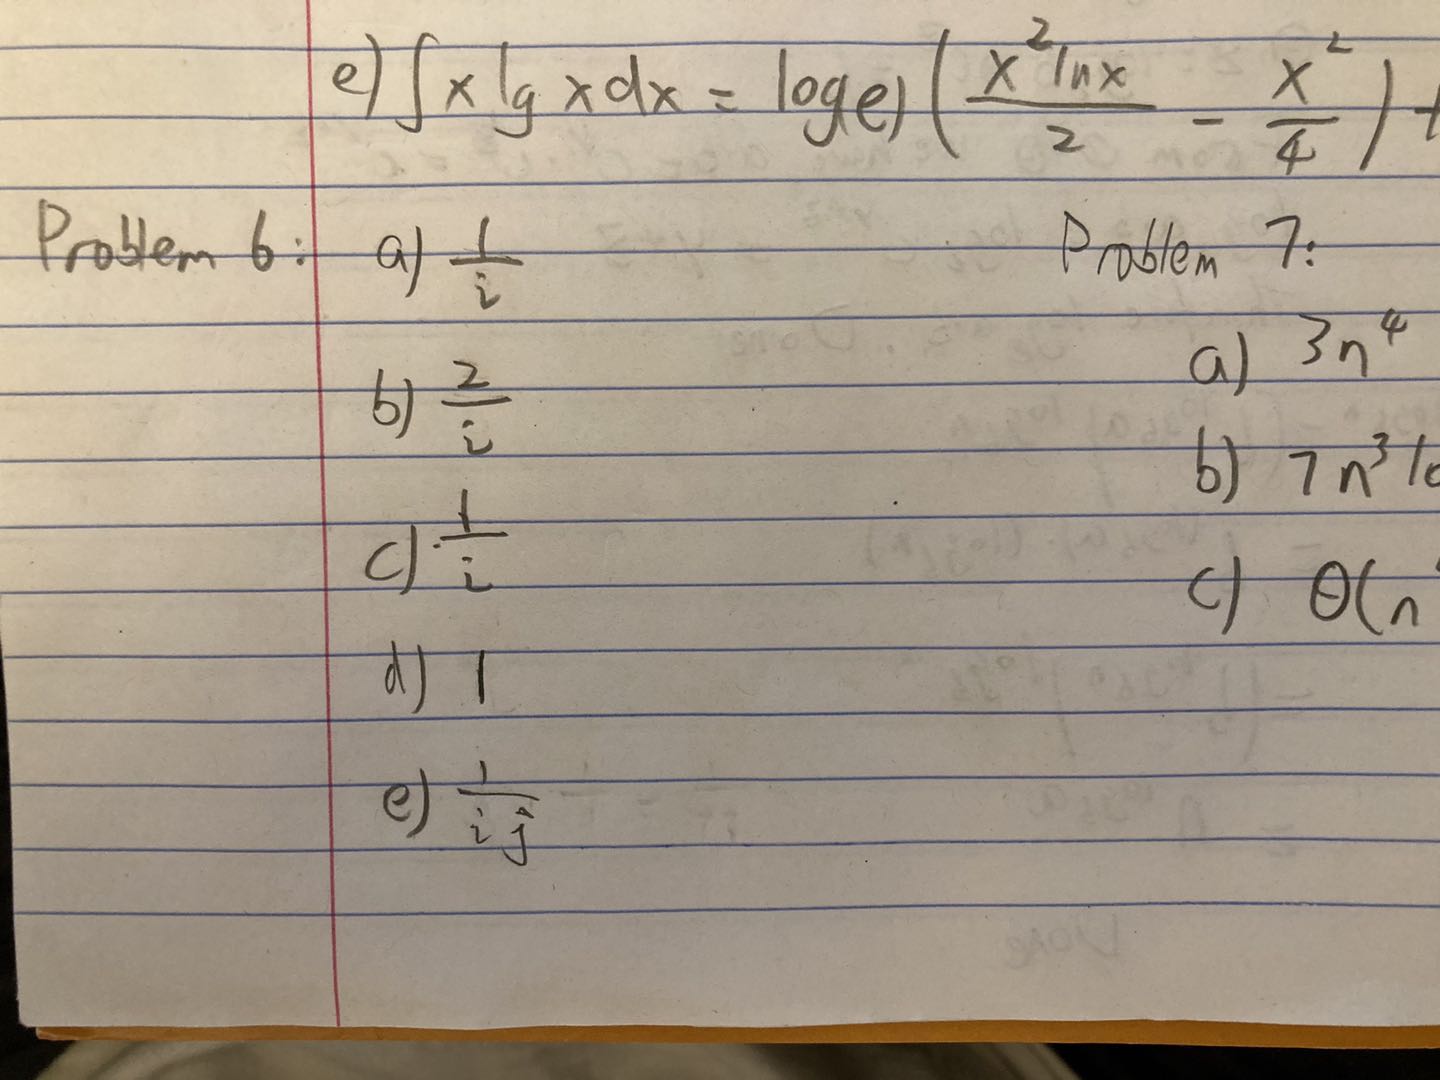 e) ∫ x lg x dx = loge) ( x² ln x / 2 - x² / 4 ) +
Problem 6: a) 1/i
b) 2/i
c) 1/i
d) 1
e) 1/ij
Problem 7:
a) 3n⁴
b) 7n³ lo
c) θ(n